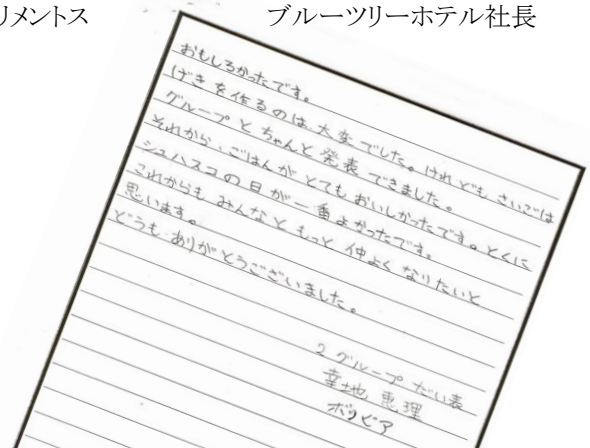 リメントス
ブルーツリーホテル社長
おもしろかったです。
げきを作るのは、大変でした。けれどもさいごは
グループとちゃんと発表できました。
それから、ごはんがとてもおいしかったです。とくに
シュハスコの日が一番よかったです。
これからもみんなともっと仲よくなりたいと
思います。
どうもありがとうございました。
2グループだい表
幸地恵理
ボリビア